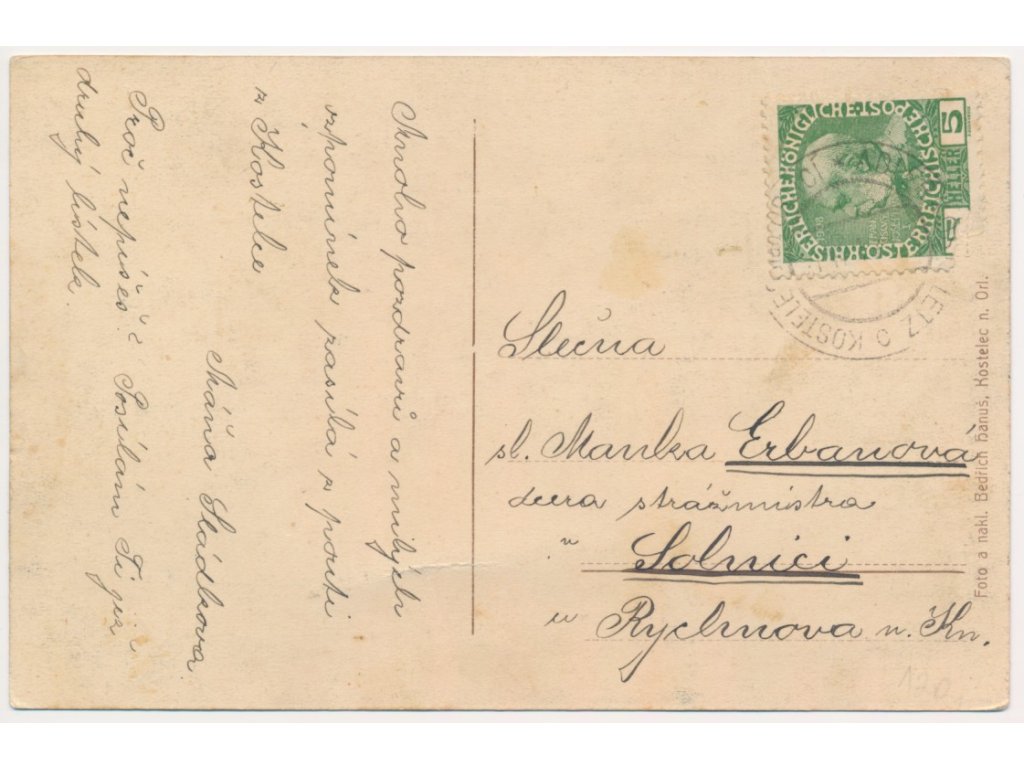 Mnoho pozdravů a milých
vzpomínek zasílá z pouti
z Kostelce
Máňa Sládkova
Proč nepíšeš? Posílám Ti již
druhý lístek.
KAISERLICHE KÖNIGLICHE POST
ÖSTERREICHISCHE
5
HELLER
5
LETZ
KOSTELE
Slečna
sl. Manka Erbanová
dcera strážmistra
v
Solnici
u Rychnova n. Kn.
Foto a nakl. Bedřich Hanuš, Kostelec n. Orl.